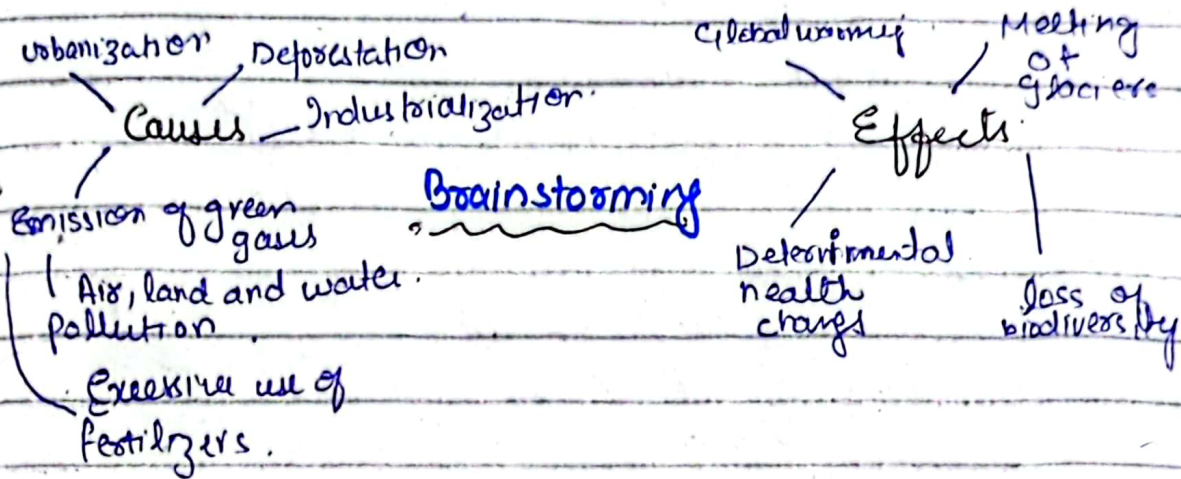 Urbanization
Deforestation
Industrialization.
Causes
Emission of green
gases
Air, land and water.
pollution.
Excessive use of
fertilizers.
Brainstorming
Global warming
Melting
of
glaciers
Effects
health
loss of
biodiversity